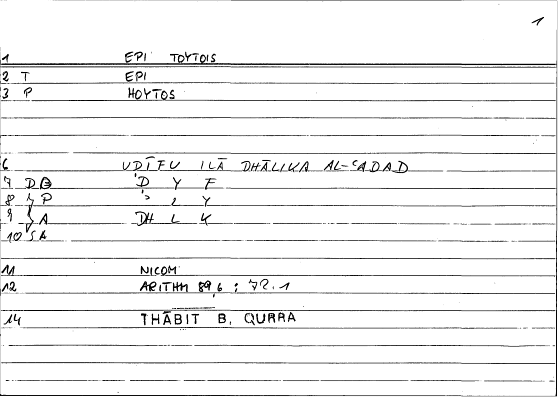 1
1 EPI TOYTOIS
2 T EPI
3 P HOYTOS
6 UDĪFU ILĀ DHĀLIKA AL-ʿADAD
7 DB 'D Y F
8 P ' L Y
9 A DH L K
10 SA
11 NICOM
12 ARITHM 89,6 ; 72.1
14 THĀBIT B. QURRA